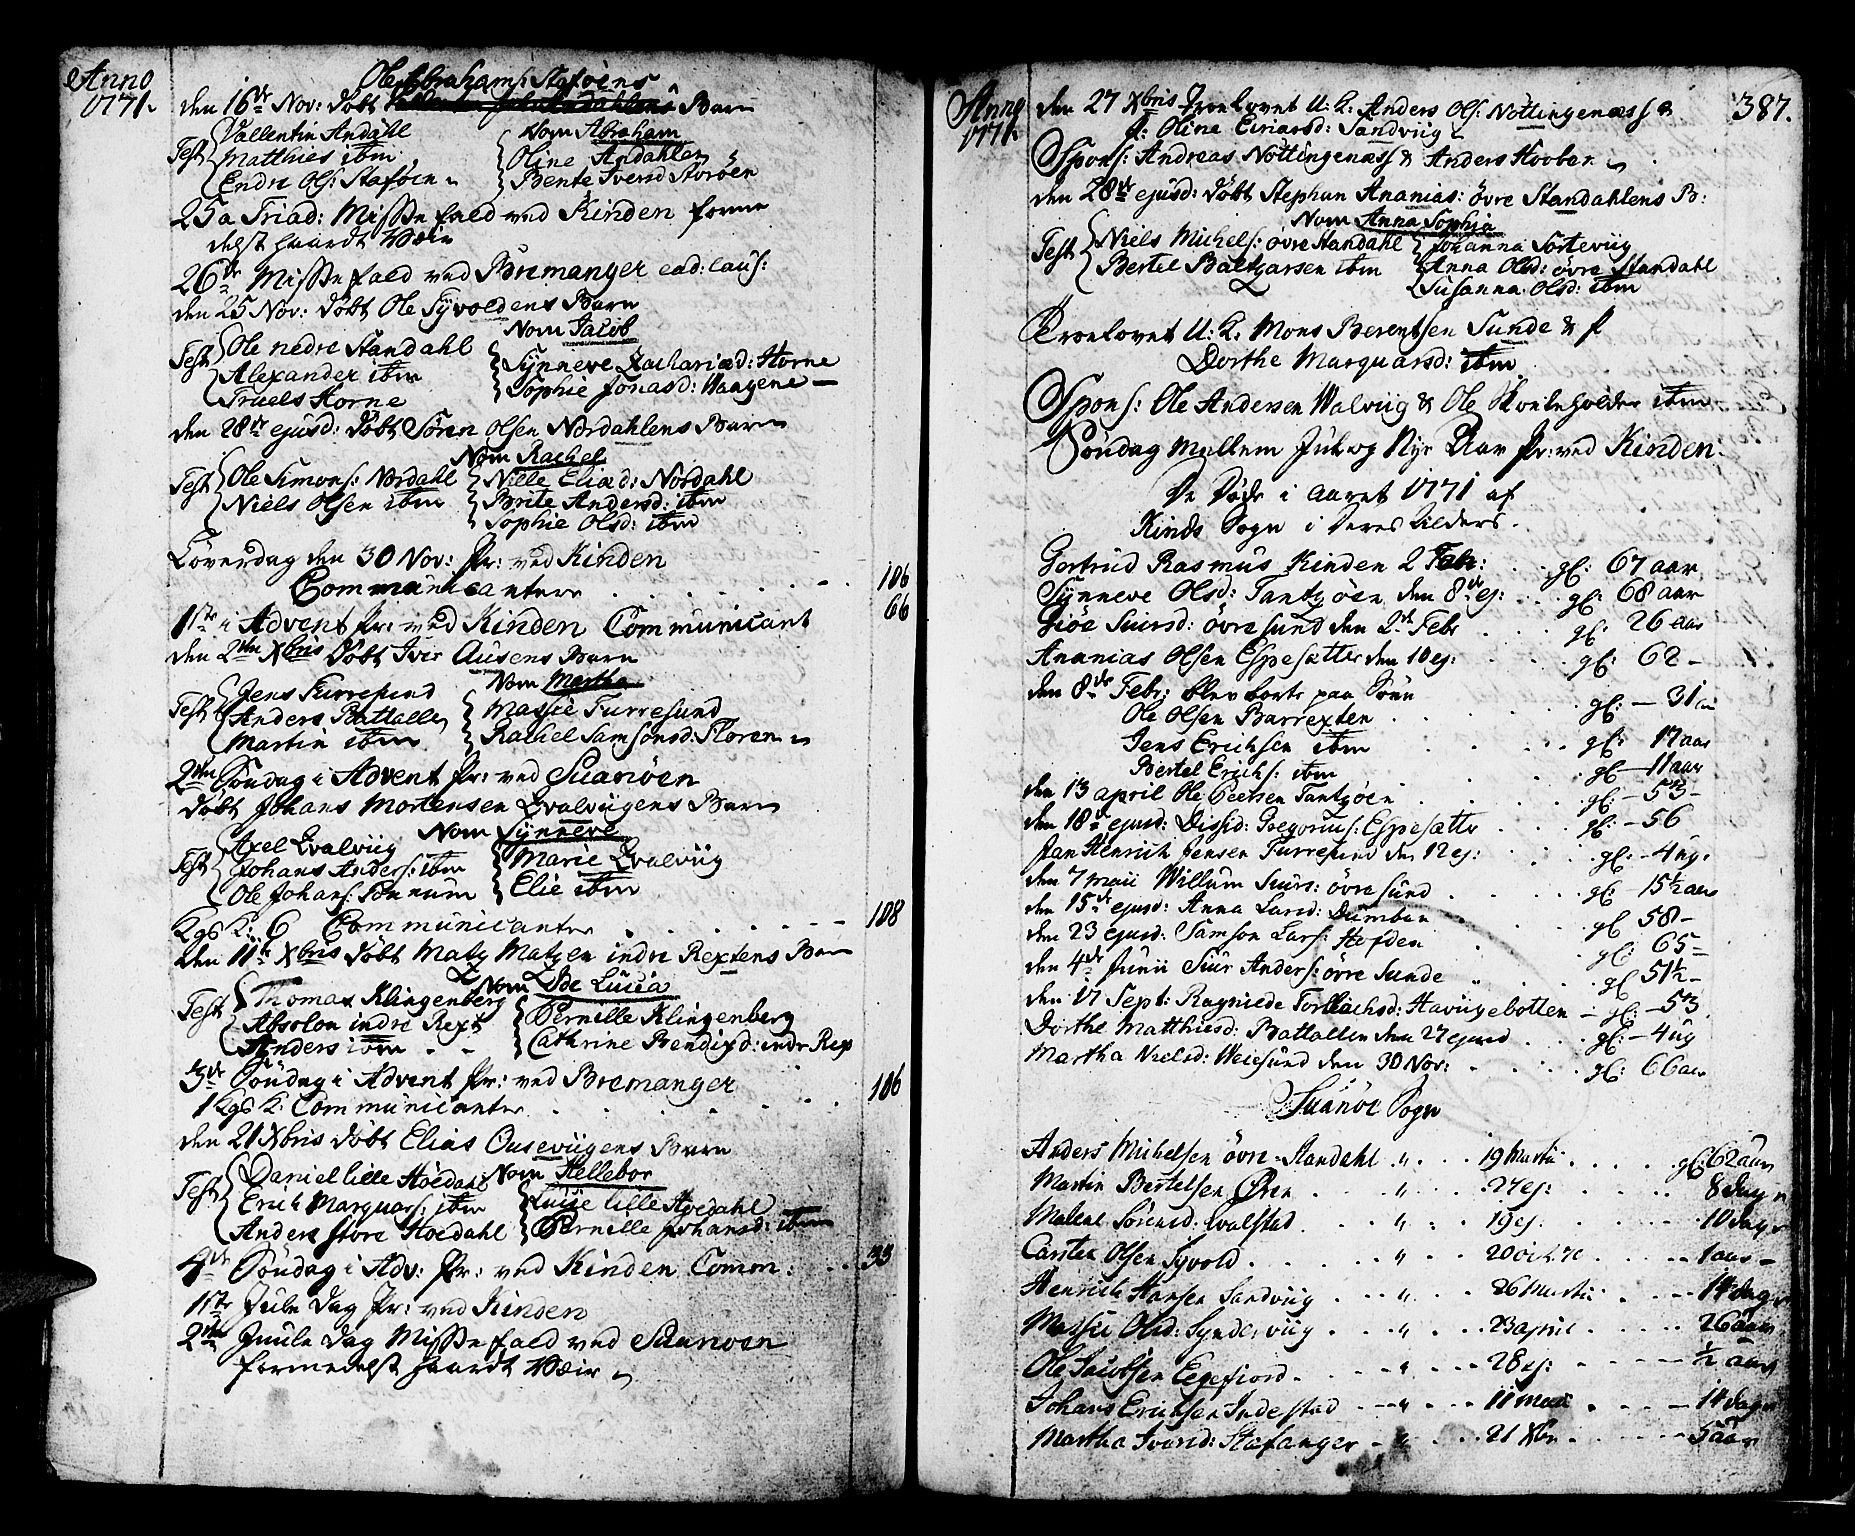 Anno 1771.
Ole Abrahams: Stafoens
den 16de Nov: døbt Barn
Nom Abraham
Test Vallentin Andahl
Matthies ibm
Endre Ols: Stafoen
Oline Andahlen
Bente Iversd Storøen
25a Triad: Messefald ved Kinden forme
delst haardt Veir
26de Messefald ved Bremanger ead: caus:
den 25 Nov: døbt Ole Syvoldens Barn
Nom Jacob
Test Ole nedre Standahl
Alexander ibm
Truels Horne
Synneve Zachariæd: Horne
Sophie Jonasd: Waagene
den 28de ejusd: døbt Søren Olsen Nordahlens Barn
Nom Rachel
Test Ole Simons: Nordahl
Niels Olsen ibm
Nille Eliæd: Nordahl
Brite Andersd: ibm
Sophie Olsd: ibm
Løverdag den 30 Nov: Pr: ved Kinden
Communicantere 106
1ste i Advent Pr: ved Kinden Communicant 66
den 2den Xbris døbt Iver Ausens Barn
Nom Martha
Test Jens Furresund
Anders Battalle
Martin ibm
Massie Furresund
Rachel Samsonsd: Floren
2den Søndag i Advent Pr: ved Suanøen
døbt Johans Mortensen Qvalviigens Barn
Nom Synneve
Test Axel Qvalviig
Johans Anders: ibm
Ole Johans: Brunum
Marie Qvalviig
Elie ibm
Kgs K: 6 Communicanter 108
Den 11te Xbris døbt Matz Matzen indre Rextens Barn
Nom Ide Lucia
Test Thomas Klingenberg
Absolon indre Rext
Anders ibm
Pernille Klingenberg
Cathrine Bendixd: indr Rex
3de Søndag i Advent Pr: ved Bremanger
1 Kgs K: Communicanter 106
den 21 Xbris døbt Elias Ouseviigens Barn
Nom Hellebor
Test Daniel lille Høedal
Erich Marquars: ibm
Anders store Hoedahl
Lucie lille Hoedahl
Pernille Johansd: ibm
4de Søndag i Adv: Pr: ved Kinden Comm: 33
1ste Jule Dag Pr: ved Kinden
2den Juule Dag Messefald ved Suanoen
formedelst haardt Veir
Anno 1771.
387.
den 27 Xbris Troelovet U: K: Anders Ols: Nøttingenæss &
P: Oline Einarsd: Sandviig
Spons: Andreas Nøttingenæss & Anders Hovben
den 28de ejusd: døbt Stephan Ananias: øvre Standahlens B:
Nom Anna Sophia
Test Niels Michels: øvre Standahl
Bertel Baltzarsen ibm
Johanna Sorteviig
Anna Olsd: øvre Standahl
Susanna Olsd: ibm
Troelovet U: K: Mons Berentsen Sunde & P
Dorthe Marquarsd: ibm
Spons: Ole Andersen Walviig & Ole ibm
Søndag mellem Juel og Nye Aar Pr: ved Kinden
De Døde i Aaret 1771 af
Kinds Sogn i deres Alders.
Gertrud Rasmus Kinden 2 Febr: gl: 67 aar
Synneve Olsd: Tantzøen den 8de ej: gl: 68 aar
Giøe Siursd: øvre sund den 2de Febr gl: 26 aar
Ananias Olsen Espesætter den 10 ej: gl: 62 -
den 8de Febr: blev borte paa Søen
Ole Olsen Barrexten gl: - 31
Jens Erichsen ibm gl: 17 aar
Bertel Erichs: ibm gl - 11 aar
den 13 april Ole Peersen Tantzøen gl: - 53 -
den 18de ejusd: Dissid: Gregorius: Espesætter gl: - 56
Jan Henrich Jensen Furresund den 12 ej: gl: - 4 ug:
den 7 maii Willum Siurs: øvre sund gl - 15½ aar
den 15de ejusd: Anna Larsd: Dumben gl 58 -
den 23 ejusd: Samson Lars: Hofden gl: 65 -
den 4de Junii Siur Anders: øvre Sunde gl 51½ -
den 17 Sept: Ragniede Torllachsd: Haviigebotten gl: - 53
Dorthe Matthiesd: Battallen den 27 ejusd gl: - 4 ug
Martha Nielsd: Weiesund den 30 Nov: gl: 66 aar
Suanøe Sogn
Anders Michelsen øvre Standahl 19 Martii gl: 62 aar
Martin Bertelsen Øren 27 ej: 8 dage
Malene Sørensd: Qvalstad 19 ej: 10 dage
Carsten Olsen Syvold 20 1 aar -
Henrich Hansen Sandviig 26 Martii 14 dage
Massie Olsd: Synderviig 23 april 26 aar
Ole Jacobsen Egefiord 28 ej: ½ aar
Johans Erichsen Indestad 11 Maii 14 dage
Martha Iversd: Stafanger 21 Xbr 5 aar